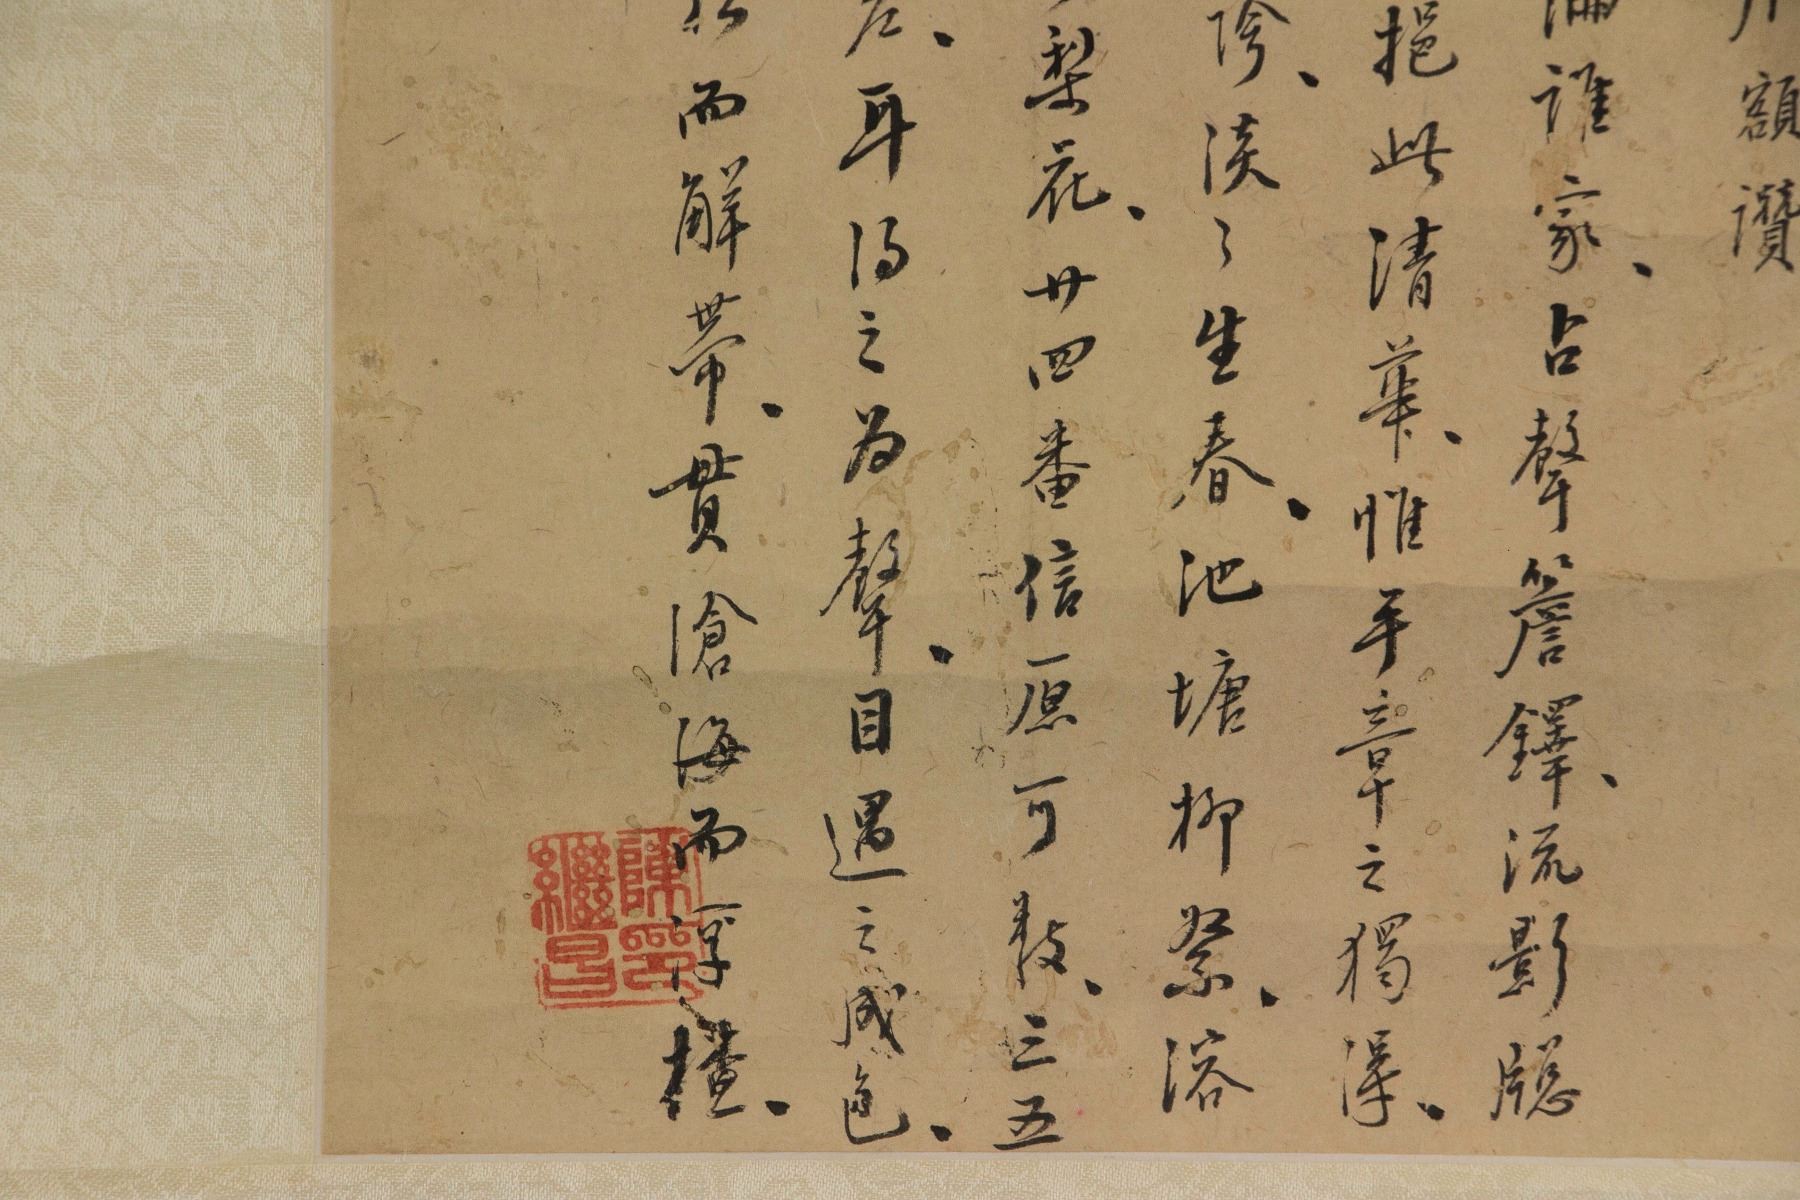 額讚
誰家、占聲簷鐸、流影牕
挹此清華、惟平章之獨深、
陰、淡〻生春、池塘柳絮、溶
梨花、廿四番信原可數、三五
耳得之為聲、目遇之成色、
而解帶、貫滄海而浮楂、
陳繼昌印